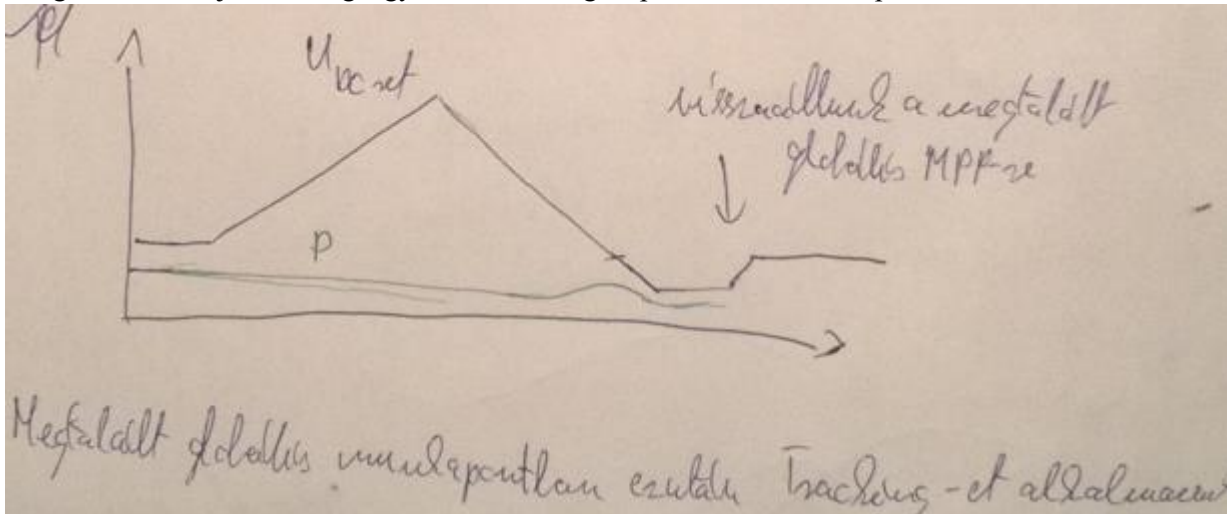 pl
U DC set
visszaállunk a megtalált
globális MPP-re
P
Megtalált globális munkapontban ezután Tracking-et alkalmazunk